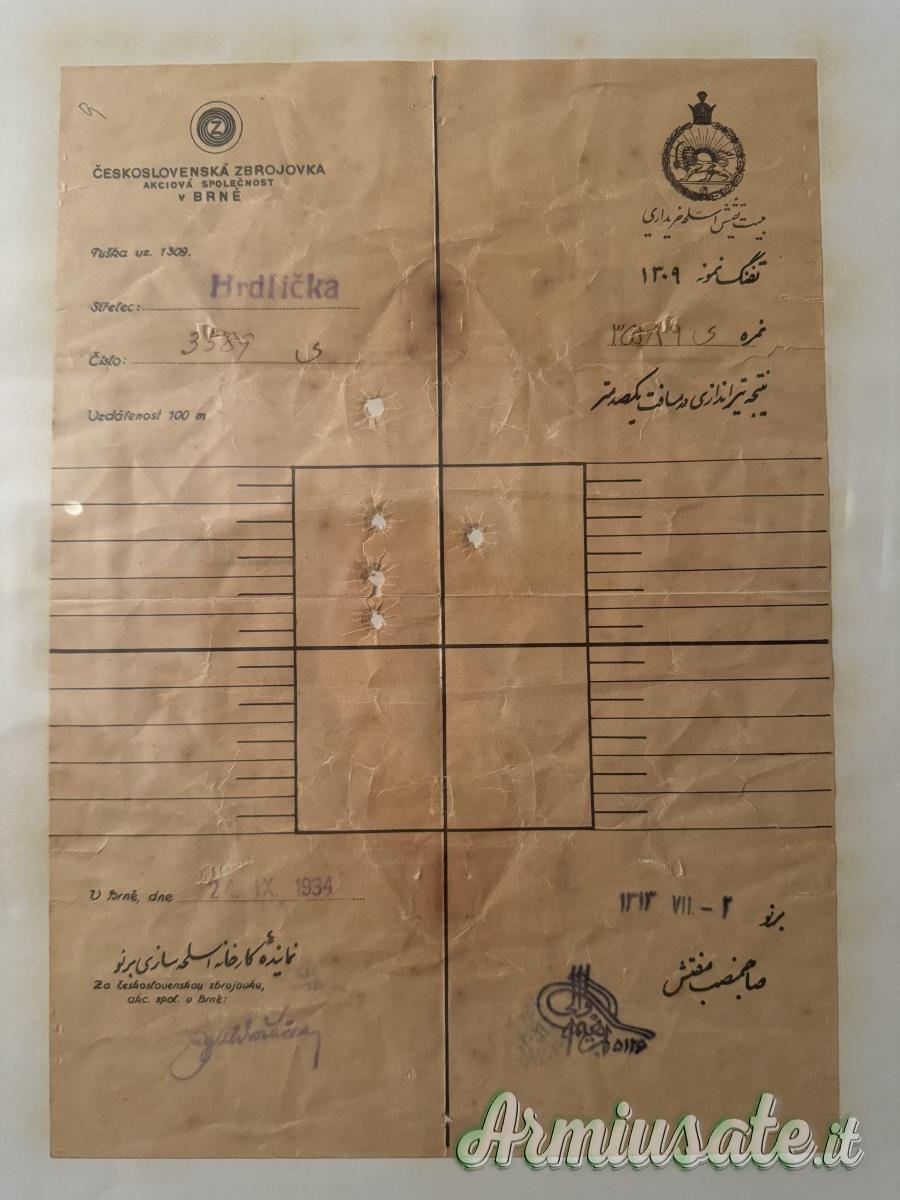 Z
ČESKOSLOVENSKÁ ZBROJOVKA
AKCIOVÁ SPOLEČNOST
v BRNĚ
Puška vz. 1309.
Střelec: Hrdlička
Číslo: ی
Vzdálenost 100 m
تفنگ نمونه ۱۳۰۹
نمره ی
نتیجه تیراندازی در مسافت یکصد متر
V Brně, dne IX. 1934
نمایندهٔ کارخانه اسلحه سازی برنو
Za československou zbrojovku,
akc. spol. v Brně:
برنو ۲ - VII. ۱۳۱۳
صاحبمنصب مفتش
Armiusate.it